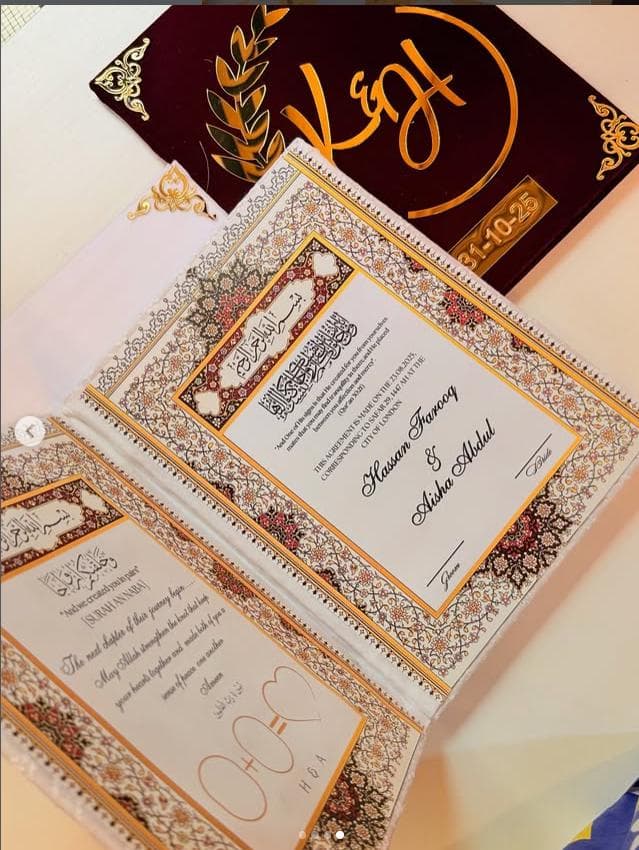 K&H
31-10-25
بسم الله الرحمن الرحيم
"And One of His signs is that He created for you from yourselves
mates that you may find tranquility in them; and He placed
between you affection and mercy".
(Qur'an 30:21)
THIS AGREEMENT IS MADE ON THE 23.08.2025,
CORRESPONDING TO SAFAR 29, 1447 AH AT THE
CITY OF LONDON
Hassan Farooq
&
Aisha Abdul
Groom
Bride
بسم الله الرحمن الرحيم
وخلقناكم أزواجا
"And we created you in pairs"
[SURAH AN NABA]
The next chapter of their journey begin ....
May Allah strengthen the knot that keep
your hearts together and made both of you a
sense of peace one another
Ameen
0+0=♡
H & A